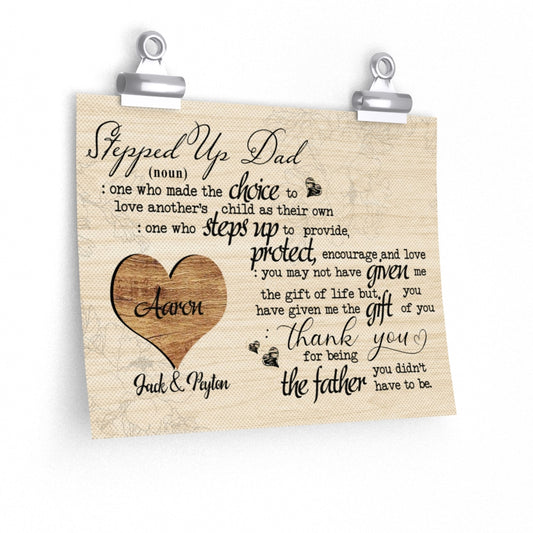 Stepped Up Dad
(noun)
: one who made the choice to
love another's child as their own
: one who steps up to provide,
protect, encourage and love
: you may not have given me
the gift of life but you
have given me the gift of you
thank you
for being
the father you didn't
have to be.
Aaron
Jack & Peyton